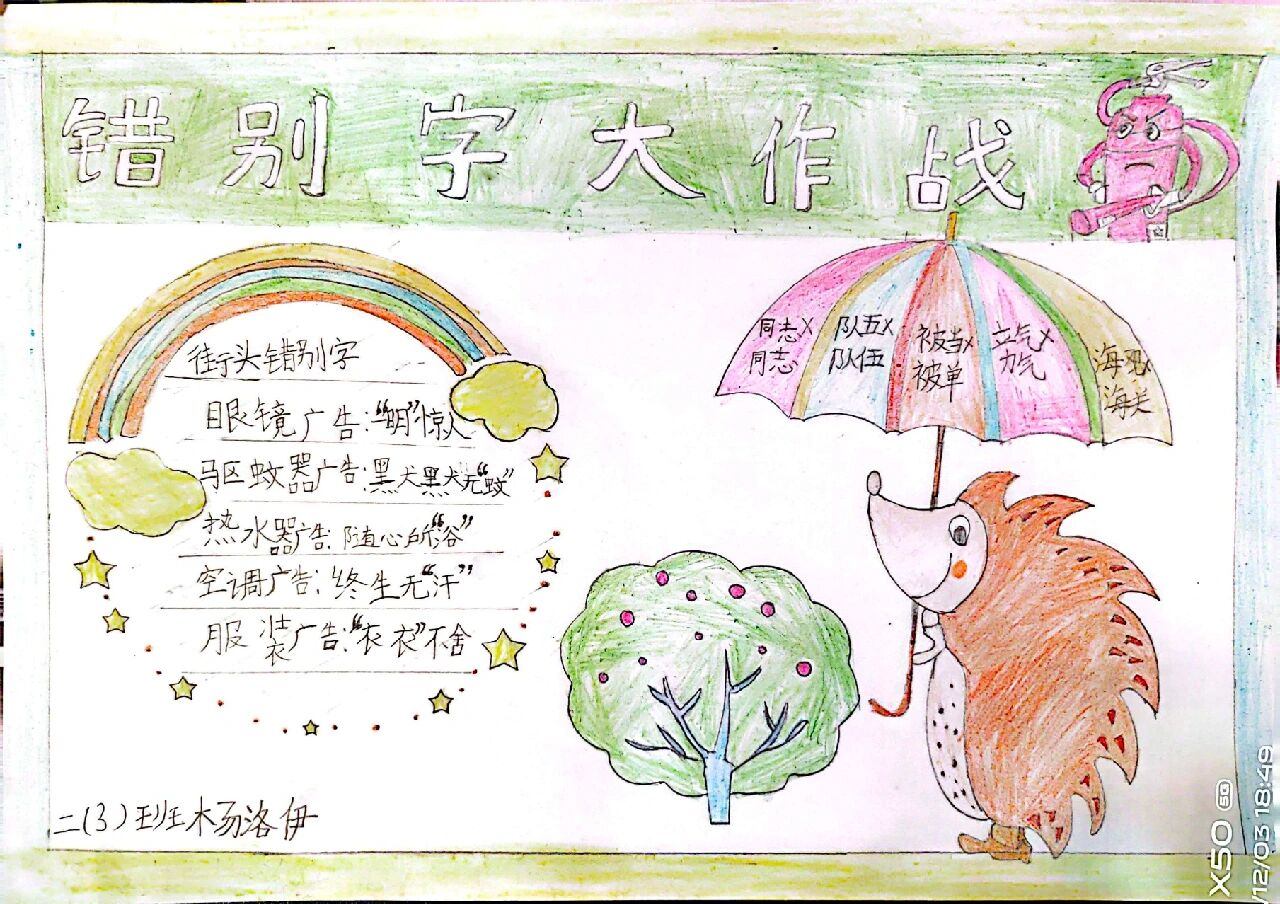 错别字大作战
街头错别字
眼镜广告:“明”惊人
驱蚊器广告:默默无“蚊”
热水器广告:随心所“浴”
空调广告:终生无“汗”
服装广告:“衣衣”不舍
同志X
同志
队五X
队伍
被当X
被单
立气X
力气
海
海关
二(3)班杨洛伊
X50 5G
12/03 18:49